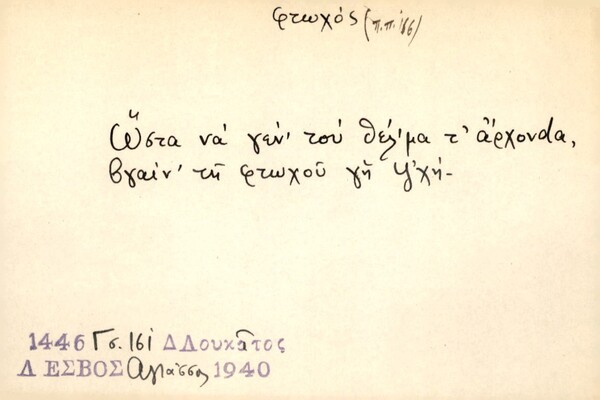 φτωχός (π.π. 166)
Ὥστα νά γεν' τού θέλ'μα τ' ἄρχοντα,
βγαίν' τῆ φτωχοῦ γῆ ψ'χή-
1446 Γσ. 161 Δ Λουκᾶτος
ΛΕΣΒΟΣ Αγιάσσος 1940